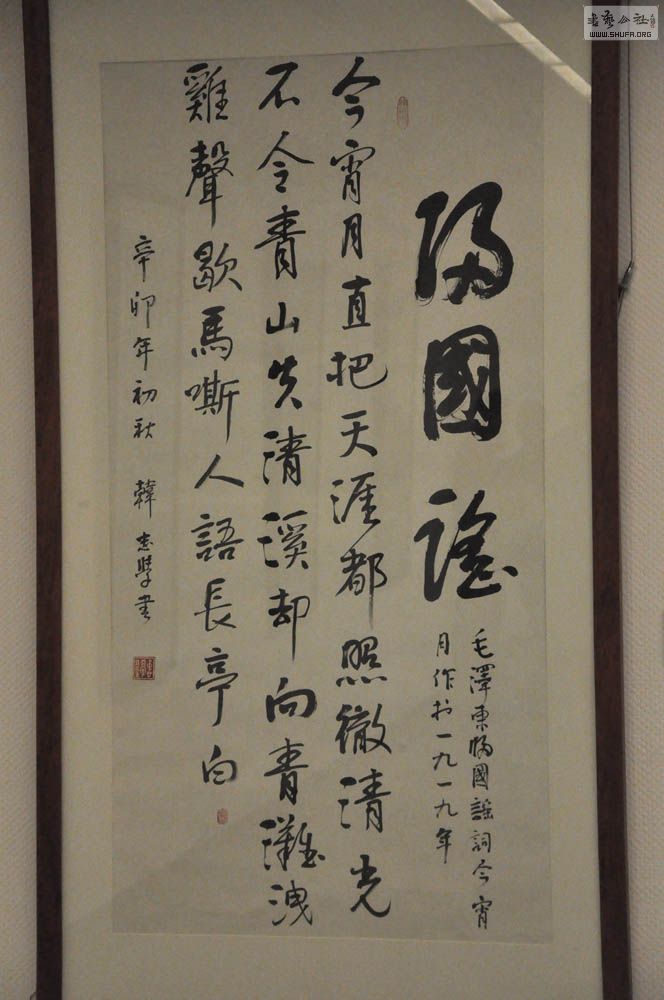 歸國謠
毛澤東歸國謠詞今宵
月作於一九一九年
今宵月直把天涯都照徹清光
不令青山失清溪却向青灘洩
雞聲歇馬嘶人語長亭白
辛卯年初秋 韓志學書
书藝公社
WWW.SHUFA.ORG